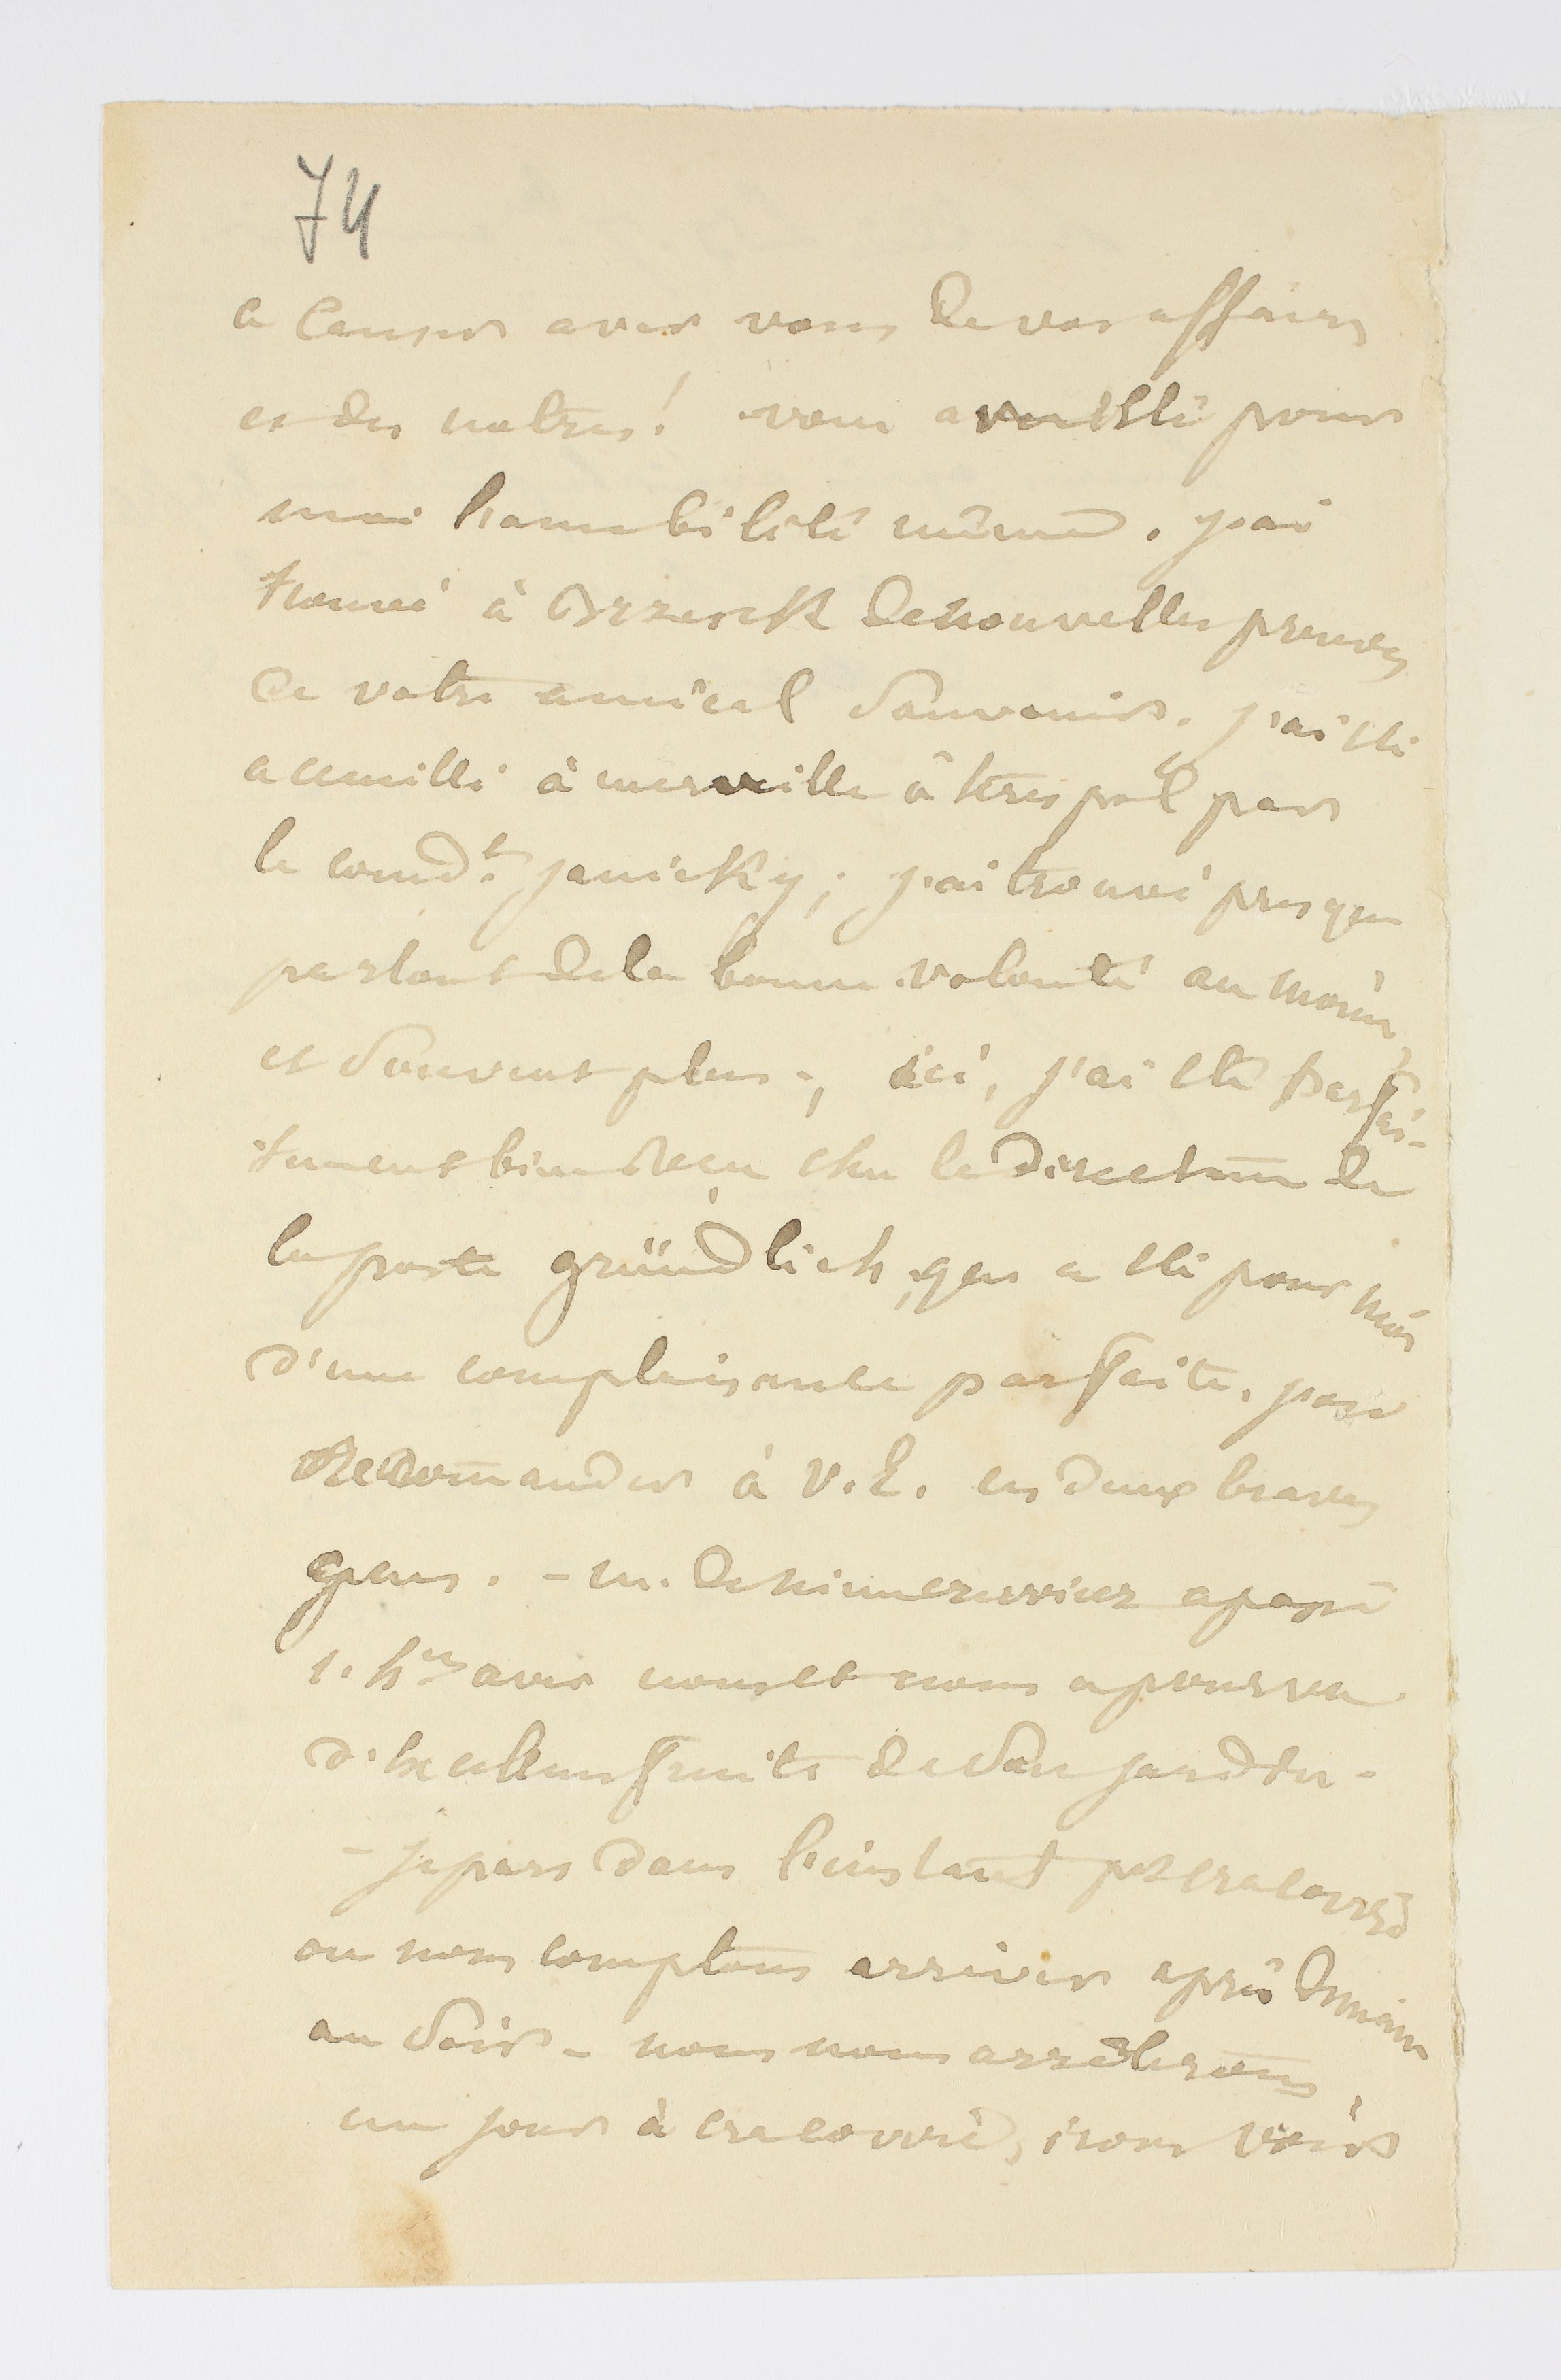 74
a causer avec vous de vos affaires
et des notres! vous avez été pour
moi l'amabilité même. j'ai
trouvé à Brzesck de nouvelles preuves
de votre amical souvenir. j'ai été
accueilli à merveille à térespol par
le comd.t janicky; j'ai trouvé presque
partout de la bonne volonté au moins,
et souvent plus -, ici, j'ai été parfai-
tement bien reçu chez le directeur de
la poste gründlich, qui a été pour moi
d'une complaisance parfaite. j'ose
recommander à V. E. ces deux braves
gens. - m. de a passé
1. h.re avec nous et nous a pourvu
d'excellens fruits de son jardin -
- je pars dans l'instant pr cracovie
ou nous comptons arriver après demain
au soir - nous nous arrêterons
un jour à cracovie, irons voir